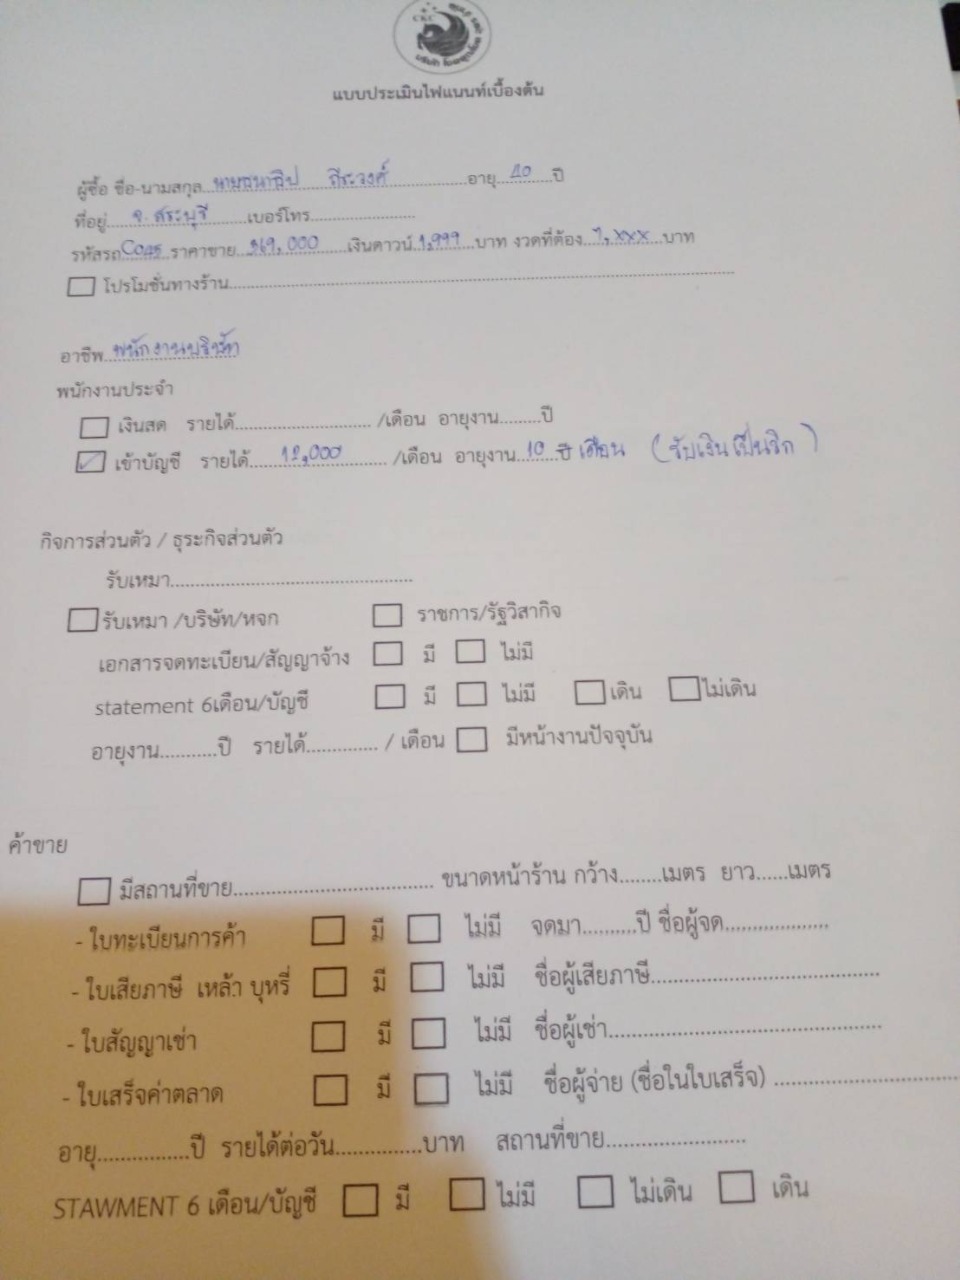 แบบประเมินไฟแนนท์เบื้องต้น
ผู้ซื้อ ชื่อ-นามสกุล....................อายุ...40...ปี
ที่อยู่...จ.สระบุรี...เบอร์โทร....................
รหัสรถ ราคาขาย...269,000...เงินดาวน์.1,999...บาท งวดที่ต้อง.7,xxx...บาท
โปรโมชั่นทางร้าน....................
อาชีพ..พนักงานบริษัท
พนักงานประจำ
เงินสด รายได้.................... /เดือน อายุงาน.........ปี
เข้าบัญชี รายได้.....12,000..... /เดือน อายุงาน..10...ปี เดือน (รับเงินเป็นวิก)
กิจการส่วนตัว / ธุระกิจส่วนตัว
รับเหมา....................
รับเหมา /บริษัท/หจก ราชการ/รัฐวิสากิจ
เอกสารจดทะเบียน/สัญญาจ้าง มี ไม่มี
statement 6เดือน/บัญชี มี ไม่มี เดิน ไม่เดิน
อายุงาน...........ปี รายได้.............. / เดือน มีหน้างานปัจจุบัน
ค้าขาย
มีสถานที่ขาย.................... ขนาดหน้าร้าน กว้าง........เมตร ยาว......เมตร
- ใบทะเบียนการค้า มี ไม่มี จดมา..........ปี ชื่อผู้จด....................
- ใบเสียภาษี เหล้า บุหรี่ มี ไม่มี ชื่อผู้เสียภาษี....................
- ใบสัญญาเช่า มี ไม่มี ชื่อผู้เช่า....................
- ใบเสร็จค่าตลาด มี ไม่มี ชื่อผู้จ่าย (ชื่อในใบเสร็จ) ....................
อายุ................ปี รายได้ต่อวัน...............บาท สถานที่ขาย....................
STAWMENT 6 เดือน/บัญชี มี ไม่มี ไม่เดิน เดิน